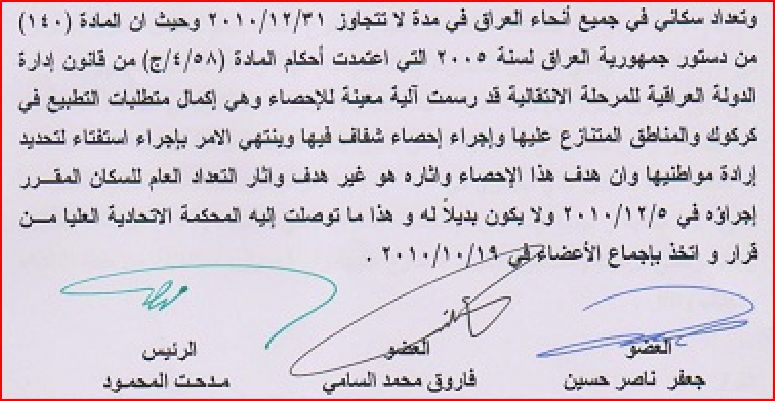 وتعداد سكاني في جميع أنحاء العراق في مدة لا تتجاوز ٢٠١٠/١٢/٣١ وحيث ان المادة (١٤٠)
من دستور جمهورية العراق لسنة ٢٠٠٥ التي اعتمدت أحكام المادة (٥٨/٤/ج) من قانون إدارة
الدولة العراقية للمرحلة الانتقالية قد رسمت آلية معينة للإحصاء وهي إكمال متطلبات التطبيع في
كركوك والمناطق المتنازع عليها وإجراء إحصاء شفاف فيها وينتهي الامر بإجراء استفتاء لتحديد
إرادة مواطنيها وان هدف هذا الإحصاء واثاره هو غير هدف واثار التعداد العام للسكان المقرر
إجراؤه في ٢٠١٠/١٢/٥ ولا يكون بديلاً له و هذا ما توصلت إليه المحكمة الاتحادية العليا مــن
قرار و اتخذ بإجماع الأعضاء في ٢٠١٠/١٠/١٩ .
العضو العضو الرئيس
جعفر ناصر حسين فاروق محمد السامي مـدحـت المحمـود